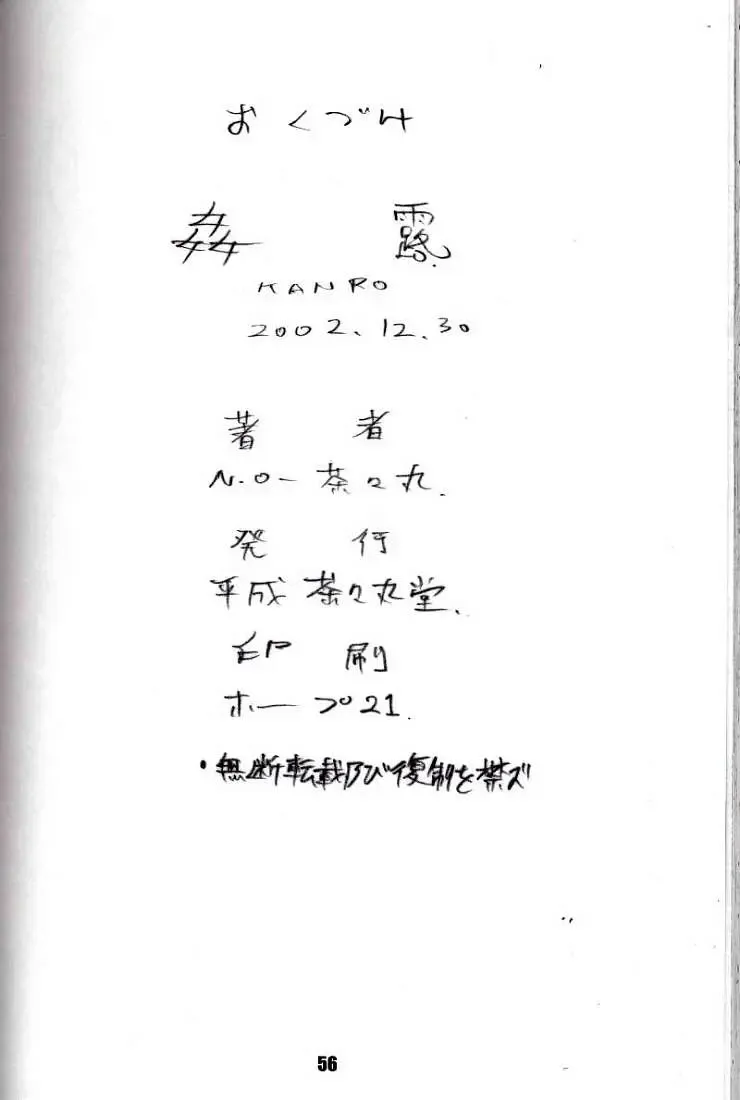 おくづけ
姦露
KANRO
2002.12.30
著者
N.O-茶々丸.
発行
平成 茶々丸堂.
印刷
ホープ21.
・無断転載及び復制を禁ズ
56